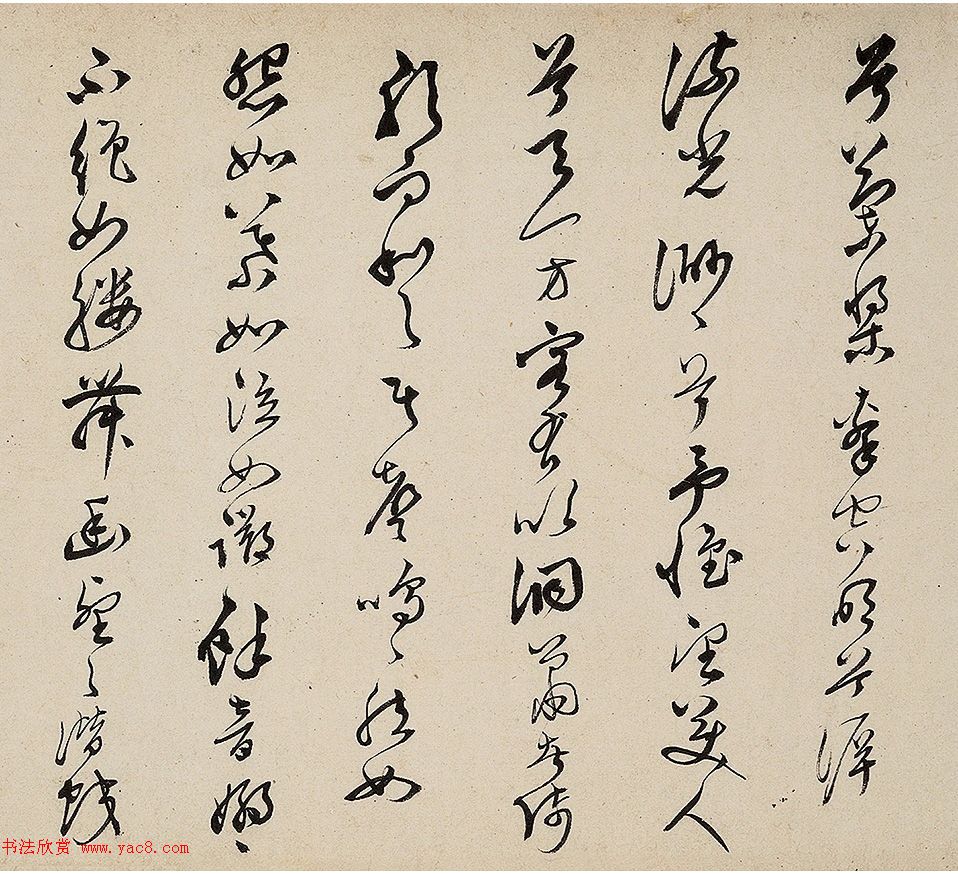 兮蘭槳擊空明兮泝
流光渺〻兮予懷望美人
兮天一方客有吹洞簫者倚
歌而和之其聲嗚〻然如
怨如慕如泣如訴餘音嫋〻
不絕如縷舞幽壑之潛蛟
书法欣赏 www.yac8.com